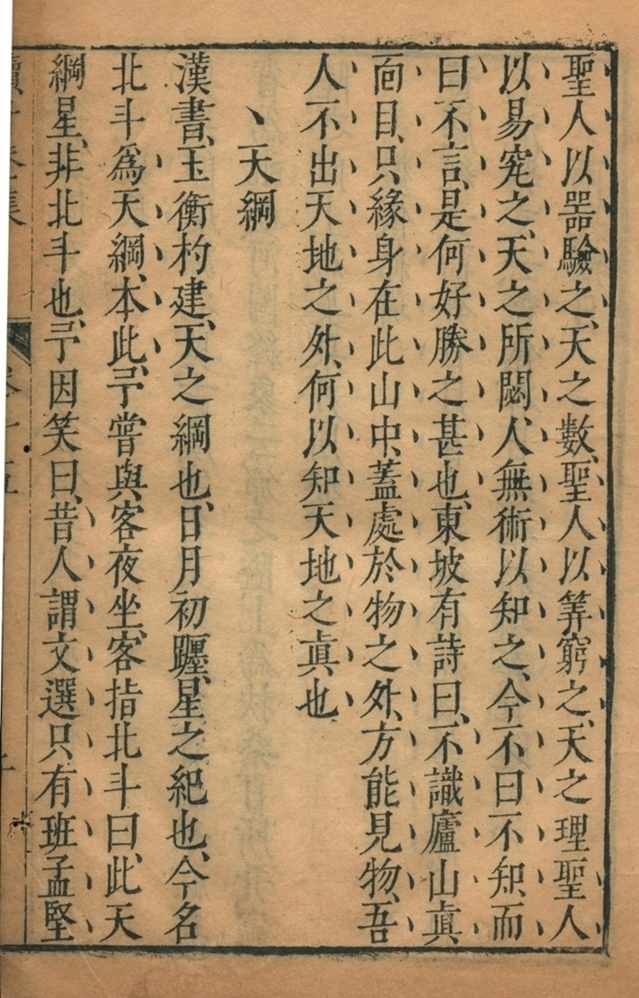 聖人以器驗之、天之數、聖人以筭窮之、天之理聖人
以易究之、天之所閟、人無術以知之、今不曰不知、而
曰不言、是何好勝之甚也、東坡有詩曰、不識廬山眞
面目、只緣身在此山中、蓋處於物之外、方能見物、吾
人不出天地之外、何以知天地之眞也
、天綱
漢書、玉衡杓建、天之綱也、日月初躔、星之紀也、今名
北斗爲天綱、本此、予嘗與客夜坐、客指北斗曰、此天
綱星、非北斗也、予因笑曰、昔人謂文選只有班孟堅